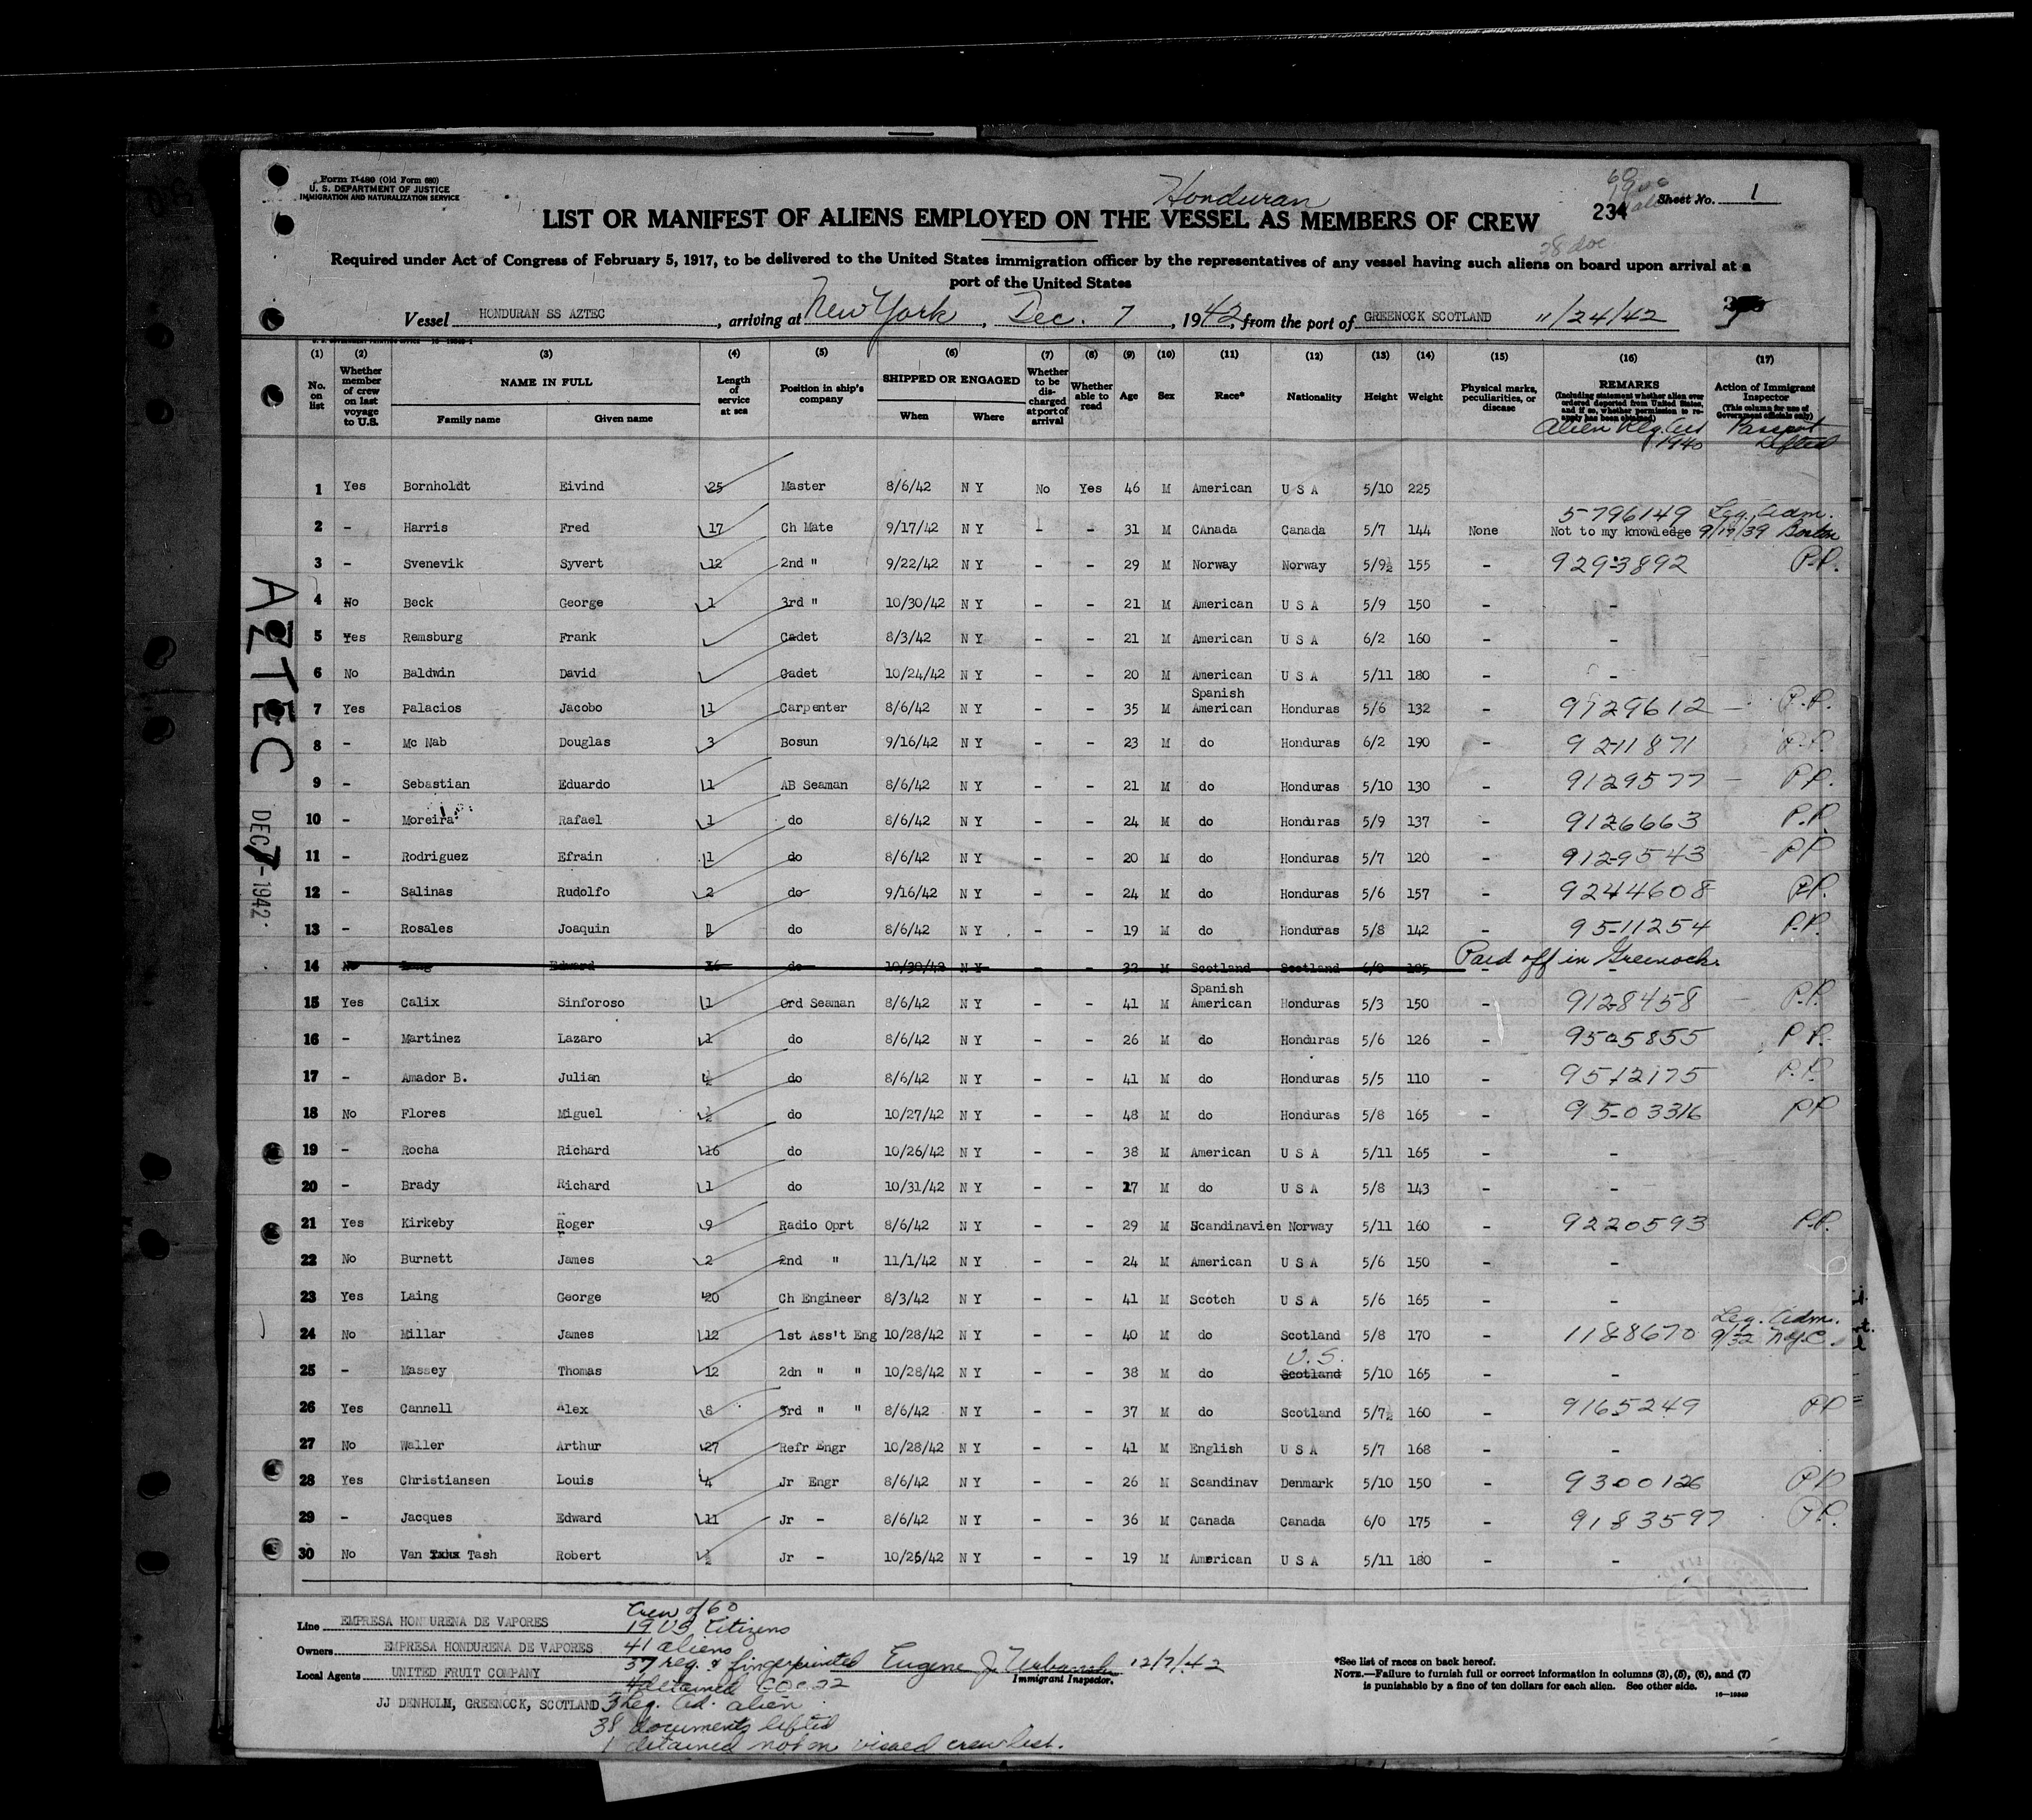 Form I-480 (Old Form 680)
U. S. DEPARTMENT OF JUSTICE
IMMIGRATION AND NATURALIZATION SERVICE
60
Honduran
234 Sheet No. 1
LIST OR MANIFEST OF ALIENS EMPLOYED ON THE VESSEL AS MEMBERS OF CREW
38 doc
Required under Act of Congress of February 5, 1917, to be delivered to the United States immigration officer by the representatives of any vessel having such aliens on board upon arrival at a
port of the United States
Vessel HONDURAN SS AZTEC, arriving at New York, Dec. 7, 1942, from the port of GREENOCK SCOTLAND 11/24/42
(1) (2) (3) (4) (5) (6) (7) (8) (9) (10) (11) (12) (13) (14) (15) (16) (17)
No. on list
Whether member of crew on last voyage to U.S.
NAME IN FULL
Family name Given name
Length of service at sea
Position in ship's company
SHIPPED OR ENGAGED
When Where
Whether to be discharged at port of arrival
Whether able to read
Age
Sex
Race*
Nationality
Height
Weight
Physical marks, peculiarities, or disease
REMARKS
(Including statement whether alien ever ordered deported from United States, and if so, whether permission to reapply has been obtained)
Alien Reg. Act 1940
Action of Immigrant Inspector
(This column for use of Government officials only)
Passport Lifted
1 Yes Bornholdt Eivind 25 Master 8/6/42 N Y No Yes 46 M American U S A 5/10 225
5796149 Leg. Adm.
2 - Harris Fred 17 Ch Mate 9/17/42 N Y - - 31 M CAnada Canada 5/7 144 None Not to my knowledge 9/19/39 Boston
3 - Svenevik Syvert 12 2nd " 9/22/42 N Y - - 29 M Norway Norway 5/9½ 155 - 9293892 P.P.
4 No Beck George 1 3rd " 10/30/42 N Y - - 21 M American U S A 5/9 150 - -
5 Yes Remsburg Frank Cadet 8/3/42 N Y - - 21 M American U S A 6/2 160 - -
6 No Baldwin David Cadet 10/24/42 N Y - - 20 M American U S A 5/11 180 - -
7 Yes Palacios Jacobo 1 Carpenter 8/6/42 N Y - - 35 M Spanish American Honduras 5/6 132 - 9129612 - P.P.
8 - Mc Nab Douglas 3 Bosun 9/16/42 N Y - - 23 M do Honduras 6/2 190 - 9211871 P.P.
9 - Sebastian Eduardo 1 AB Seaman 8/6/42 N Y - - 21 M do Honduras 5/10 130 - 9129577 - P.P.
10 - Moreira Rafael 1 do 8/6/42 N Y - - 24 M do Honduras 5/9 137 - 9126663 P.P.
11 - Rodriguez Efrain 1 do 8/6/42 N Y - - 20 M do Honduras 5/7 120 - 9129543 - P.P
12 - Salinas Rudolfo 2 do 9/16/42 N Y - - 24 M do Honduras 5/6 157 - 9244608 P.P.
13 - Rosales Joaquin 1 do 8/6/42 N Y - - 19 M do Honduras 5/8 142 - 9511254 P.P.
14 No Edward 16 do 10/30/42 N Y 32 M Scotland Scotland 6/0 - Paid off in Greenock.
15 Yes Calix Sinforoso 1 Ord Seaman 8/6/42 N Y - - 41 M Spanish American Honduras 5/3 150 - 9128458 - P.P.
16 - Martinez Lazaro 1 do 8/6/42 N Y - - 26 M do Honduras 5/6 126 - 9505855 P.P.
17 - Amador B. Julian ½ do 8/6/42 N Y - - 41 M do Honduras 5/5 110 - 9512175 P.P.
18 No Flores Miguel ½ do 10/27/42 N Y - - 48 M do Honduras 5/8 165 - 9503316 P.P
19 - Rocha Richard 16 do 10/26/42 N Y - - 38 M American U S A 5/11 165 - -
20 - Brady Richard 1 do 10/31/42 N Y - - 27 M do U S A 5/8 143 - -
21 Yes Kirkeby Roger 9 Radio Oprt 8/6/42 N Y - - 29 M Scandinavien Norway 5/11 160 - 9220593 P.P.
22 No Burnett James 2 2nd " 11/1/42 N Y - - 24 M American U S A 5/6 150 - -
23 Yes Laing George 20 Ch Engineer 8/3/42 N Y - - 41 M Scotch U S A 5/6 165 - -
24 No Millar James 12 1st Ass't Eng 10/28/42 N Y - - 40 M do Scotland 5/8 170 - 1188670 Leg. Adm. 9/32 N.Y.C.
U.S.
25 - Massey Thomas 12 2dn " " 10/28/42 N Y - - 38 M do Scotland 5/10 165 - -
26 Yes Cannell Alex 8 3rd " " 8/6/42 N Y - - 37 M do Scotland 5/7½ 160 - 9165249 P.P
27 No Waller Arthur 27 Refr Engr 10/28/42 N Y - - 41 M English U S A 5/7 168 - -
28 Yes Christiansen Louis 4 Jr Engr 8/6/42 N Y - - 26 M Scandinav Denmark 5/10 150 - 9300126 P.P
29 - Jacques Edward 11 Jr - 8/6/42 N Y - - 36 M Canada Canada 6/0 175 - 9183597 P.P.
30 No Van Tash Robert ½ Jr - 10/26/42 N Y - - 19 M American U S A 5/11 180 - -
AZTEC
DEC 7-1942
Crew of 60
Line EMPRESA HONDURENA DE VAPORES 19 US Citizens
Owners EMPRESA HONDURENA DE VAPORES 41 aliens
37 reg. & fingerprinted Eugene J. Urbanski 12/7/42
Immigrant Inspector.
Local Agents UNITED FRUIT COMPANY
4 detained
JJ DENHOLM, GREENOCK, SCOTLAND 3 Leg. Ad. alien
38 documents lifted
1 detained not on visaed crew list.
*See list of races on back hereof.
NOTE.—Failure to furnish full or correct information in columns (3), (5), (6), and (7)
is punishable by a fine of ten dollars for each alien. See other side.